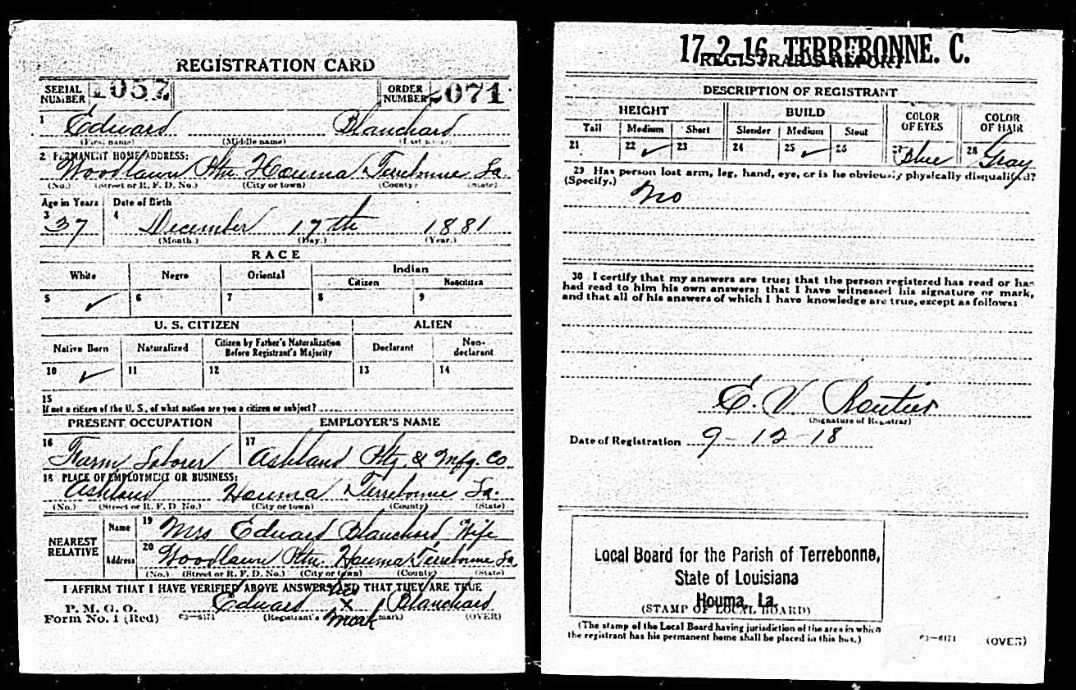 REGISTRATION CARD
SERIAL NUMBER 1057 ORDER NUMBER 2071
1 Edward Blanchard
(First name) (Middle name) (Last name)
2 PERMANENT HOME ADDRESS:
Woodlawn Ptn Houma Terrebonne La.
(No.) (Street or R. F. D. No.) (City or town) (County) (State)
Age in Years Date of Birth
3 37 4 December 17th 1881
(Month.) (Day.) (Year.)
RACE
White Negro Oriental Indian
Citizen Noncitizen
5 ✓ 6 7 8 9
U. S. CITIZEN ALIEN
Native Born Naturalized Citizen by Father's Naturalization Before Registrant's Majority Declarant Non-declarant
10 ✓ 11 12 13 14
15
If not a citizen of the U. S., of what nation are you a citizen or subject?
PRESENT OCCUPATION EMPLOYER'S NAME
16 Farm Laborer 17 Ashland Ptg. & Mfg. Co
18 PLACE OF EMPLOYMENT OR BUSINESS:
Ashland Houma Terrebonne La.
(No.) (Street or R. F. D. No.) (City or town) (County) (State)
NEAREST RELATIVE Name 19 Mrs Edward Blanchard, Wife
Address 20 Woodlawn Ptn. Houma Terrebonne La
(No.) (Street or R. F. D. No.) (City or town) (County) (State)
I AFFIRM THAT I HAVE VERIFIED ABOVE ANSWERS AND THAT THEY ARE TRUE
P. M. G. O.
Form No. 1 (Red) 03—6171 Edward his x mark Blanchard
(Registrant's signature or mark) (OVER)
17-2-16 TERREBONNE. C.
REGISTRAR'S REPORT
DESCRIPTION OF REGISTRANT
HEIGHT BUILD COLOR OF EYES COLOR OF HAIR
Tall Medium Short Slender Medium Stout
21 22 ✓ 23 24 25 ✓ 26 27 Blue 28 Gray
29 Has person lost arm, leg, hand, eye, or is he obviously physically disqualified?
(Specify.) No
30 I certify that my answers are true; that the person registered has read or has
had read to him his own answers; that I have witnessed his signature or mark,
and that all of his answers of which I have knowledge are true, except as follows:
E. V.
(Signature of Registrar)
Date of Registration 9-12-18
Local Board for the Parish of Terrebonne,
State of Louisiana
Houma, La.
(STAMP OF LOCAL BOARD)
(The stamp of the Local Board having jurisdiction of the area in which
the registrant has his permanent home shall be placed in this box.)
03—6171 (OVER)